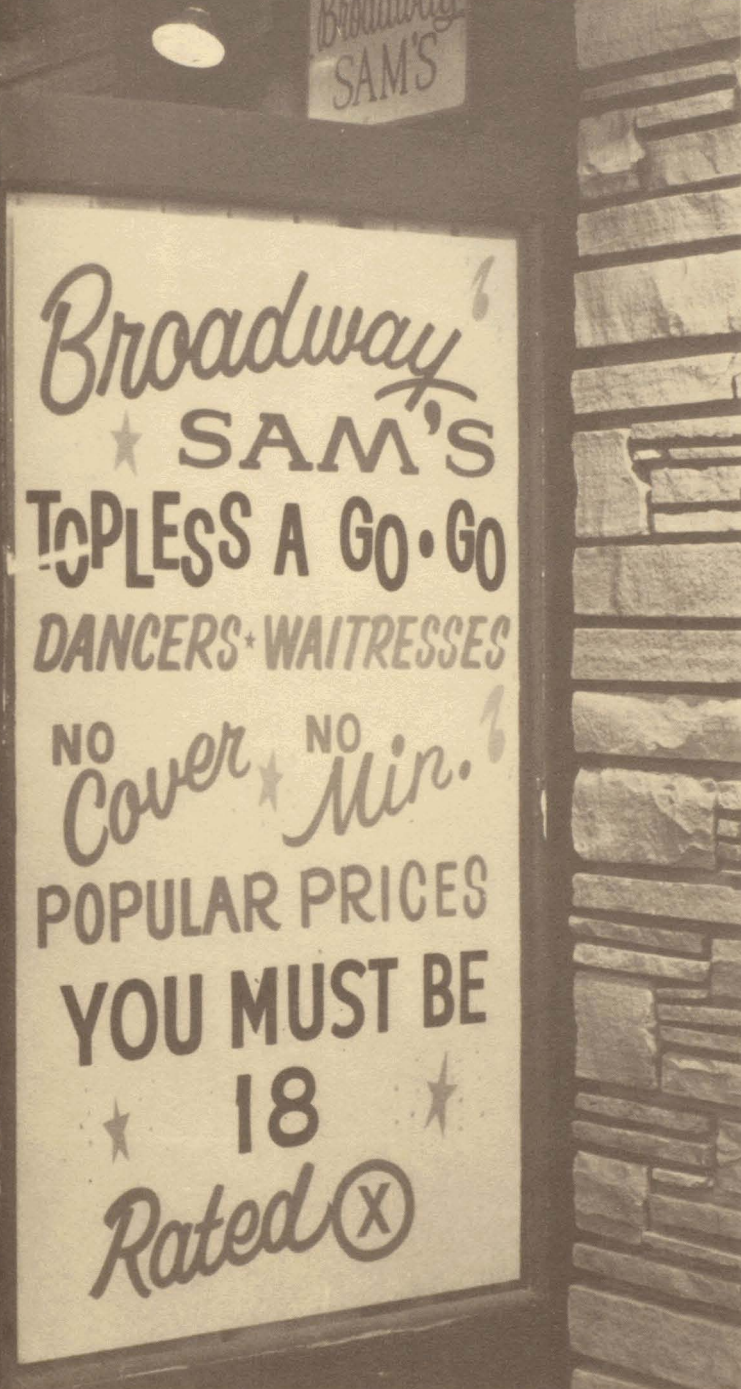 Broadway
SAM'S
Broadway
SAM'S
TOPLESS A GO•GO
DANCERS★WAITRESSES
NO Cover ★ NO Min.
POPULAR PRICES
YOU MUST BE
18
Rated X